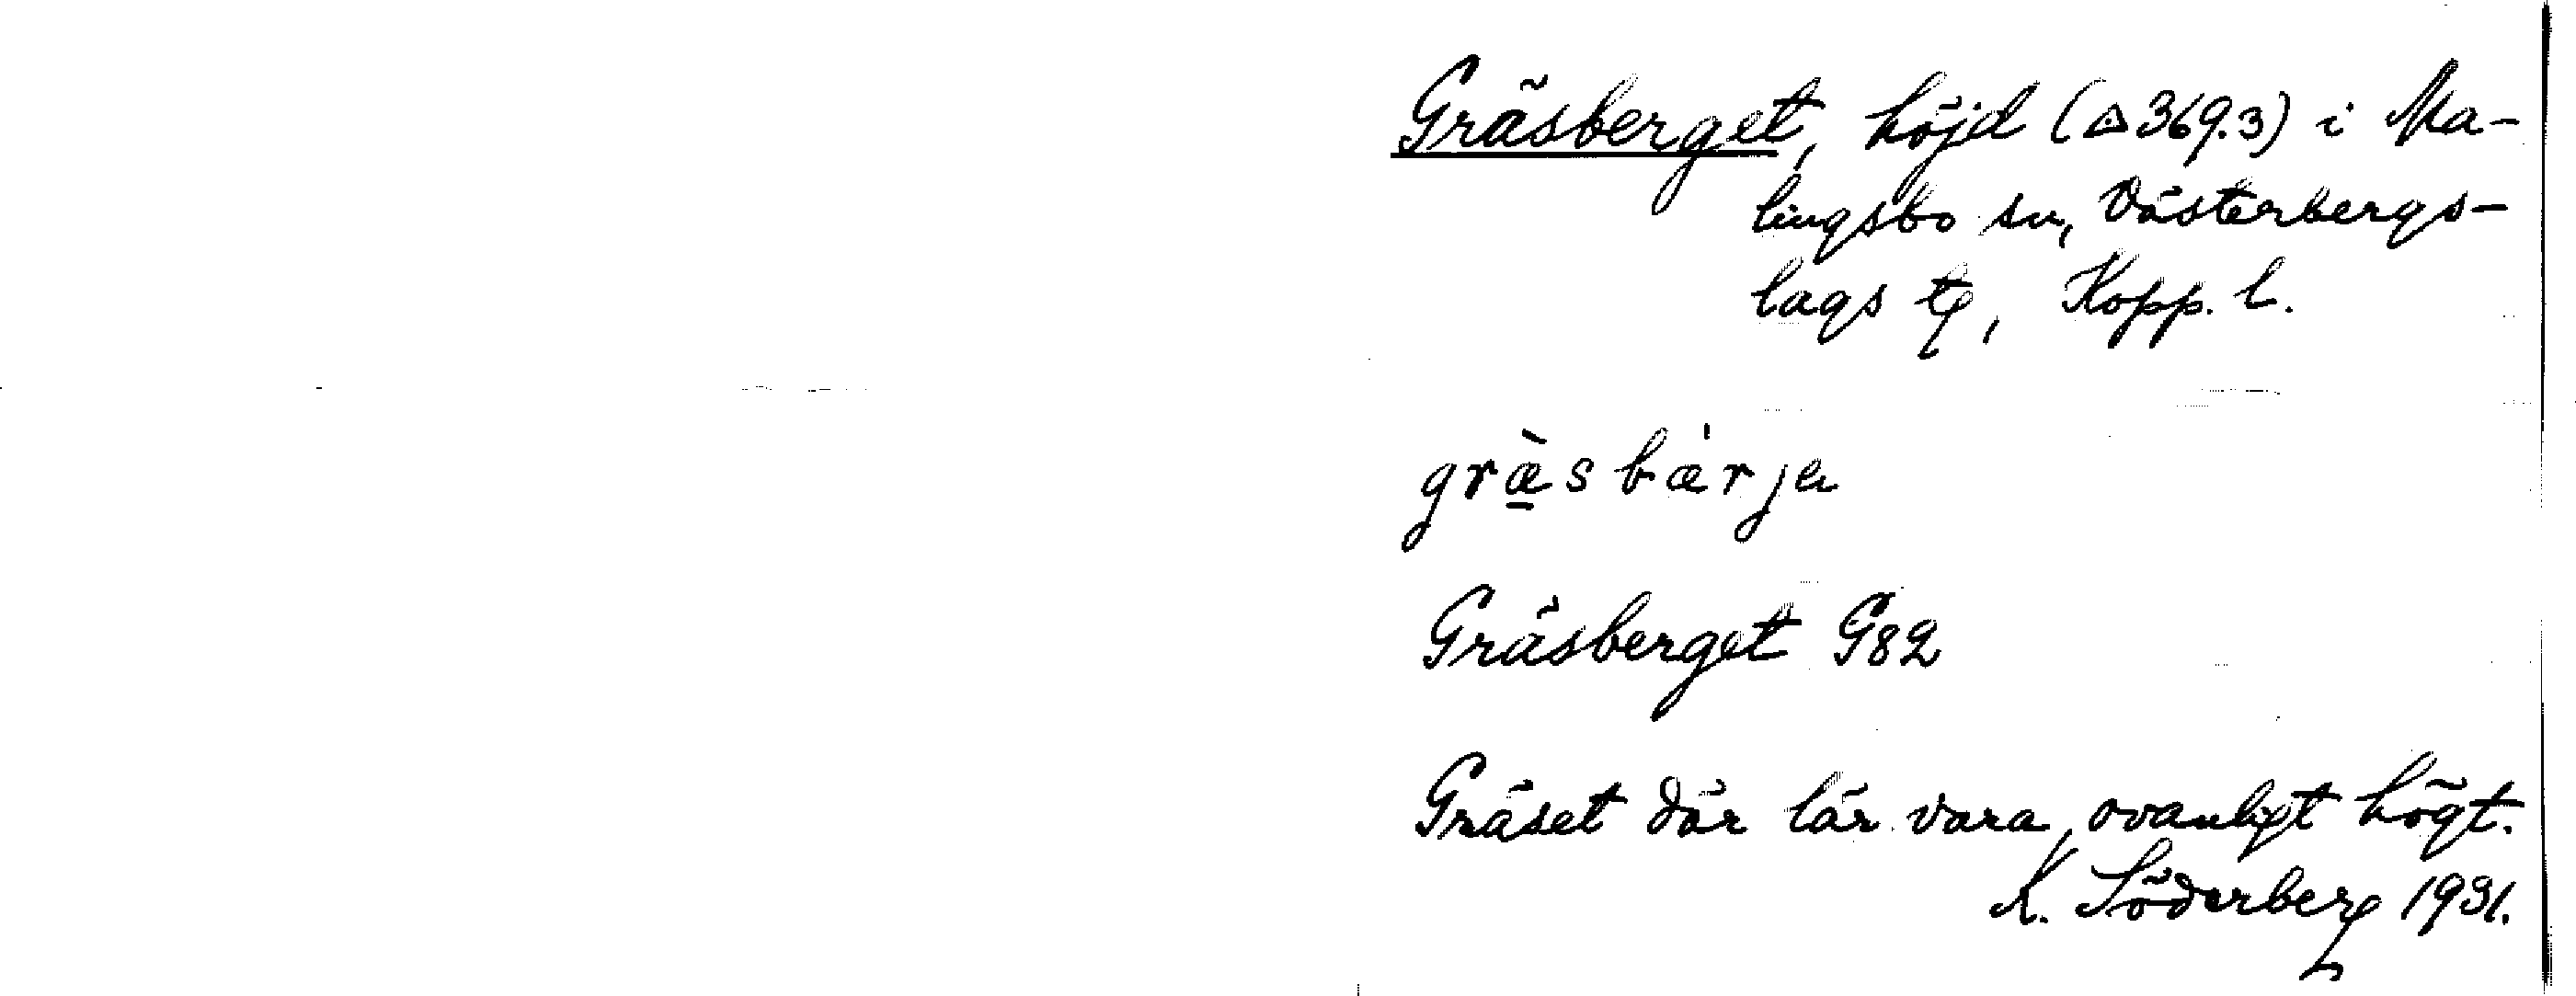 Gräsberget, höjd (△369.3) i Ma-
lingsbo sn, Västerbergs-
lags tg, Kopp. l.
græ̀sbær̀ja
Gräsberget G82
Gräset där lär vara ovanligt högt.
K. Söderberg 1931.